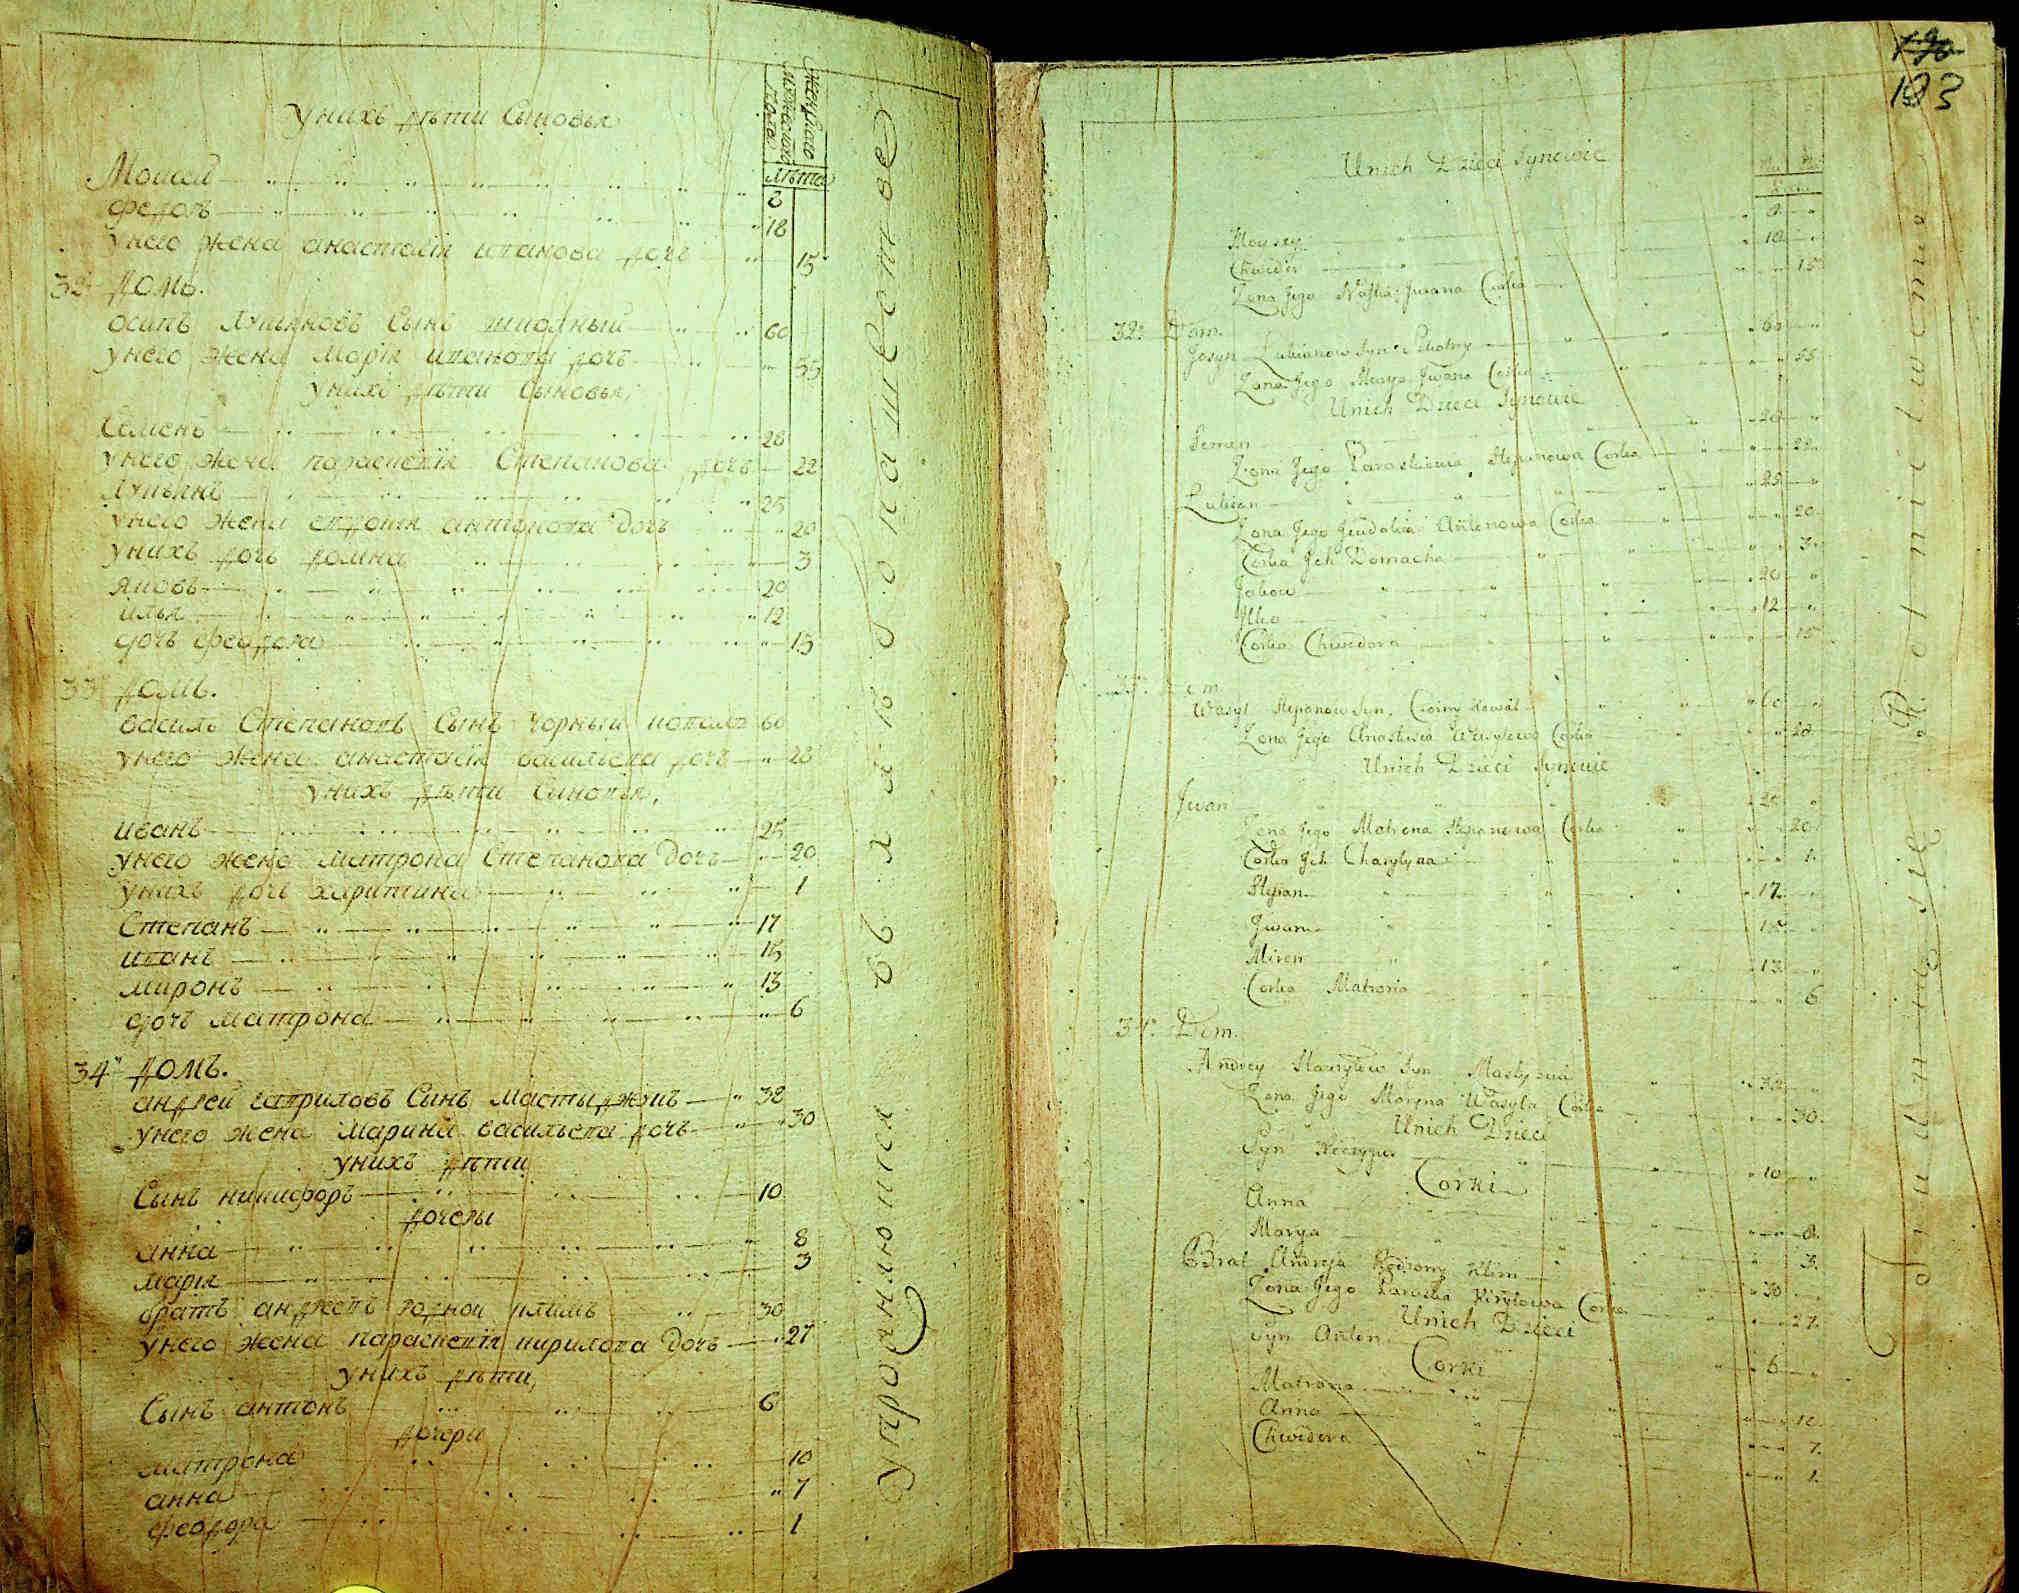 унихъ дѣти Сыновья
женскаго
мужескаго
пола
лѣта
Моисей 8
федоръ 18
унего жена анастасія иванова дочь 15
32 домъ.
осипъ лукьяновъ Сынъ 60
унего жена Марія иванова дочь 55
унихъ дѣти Сыновья,
Семенъ 28
унего жена параскевія Степанова дочь 22
лукьянъ 25
унего жена антонова дочь 20
унихъ дочь домна 3
яковъ 20
илья 12
дочь феодора 15
33 домъ.
василь Степановъ Сынъ чорный коваль 60
унего жена анастасія васильева дочь 28
унихъ дѣти Синовья,
иванъ 25
унего жена матрона Степанова дочь 20
унихъ дочь харитина 1
Степанъ 17
иванъ 15
миронъ 13
дочь матрона 6
34 домъ.
андрей гавриловъ Сынъ 38
унего жена марина васильева дочь 30
унихъ дѣти
Сынъ никифоръ 10
дочеры
анна 8
марія 3
братъ андреевъ родной климъ 30
унего жена параскевія кирилова дочь 27
унихъ дѣти,
Сынъ антонъ 6
дочери
матрона 10
анна 7
феодора 1
183
Unich Dzieci Synowie
Moysey 8
Chwedir 18
Zona Jego Nastia Jwana Corka 15
32 Dom.
Josyp Lukianow Syn 60
Zona Jego Marya Jwana Corka 55
Unich Dzieci Synowie
Semen 28
Zona Jego Paraskiewia Stepanowa Corka 22
Lukian 25
Zona Jego Antonowa Corka 20
Corka Jch Domacha 3
Jakow 20
Jlko 12
Corka Chwedora 15
33 Dom
Wasyl Stepanow Syn Czorny Kowal 60
Zona Jego Anastasia Wasylewa Corka 28
Unich Dzieci Synowie
Jwan 25
Zona Jego Matrona Stepanowa Corka 20
Corka Jch Charytyna 1
Stepan 17
Jwan 15
Miron 13
Corka Matrona 6
34 Dom.
Andrey Hawryłow Syn 38
Zona Jego Maryna Wasyla Corka 30
Unich Dzieci
Syn 10
Corki
Anna 8
Marya 3
Brat Andreja Rodzony Klim 30
Zona Jego Paraska Kiryłowa Corka 27
Unich Dzieci
Syn Anton 6
Corki
Matrona 10
Anna 7
Chwedora 1